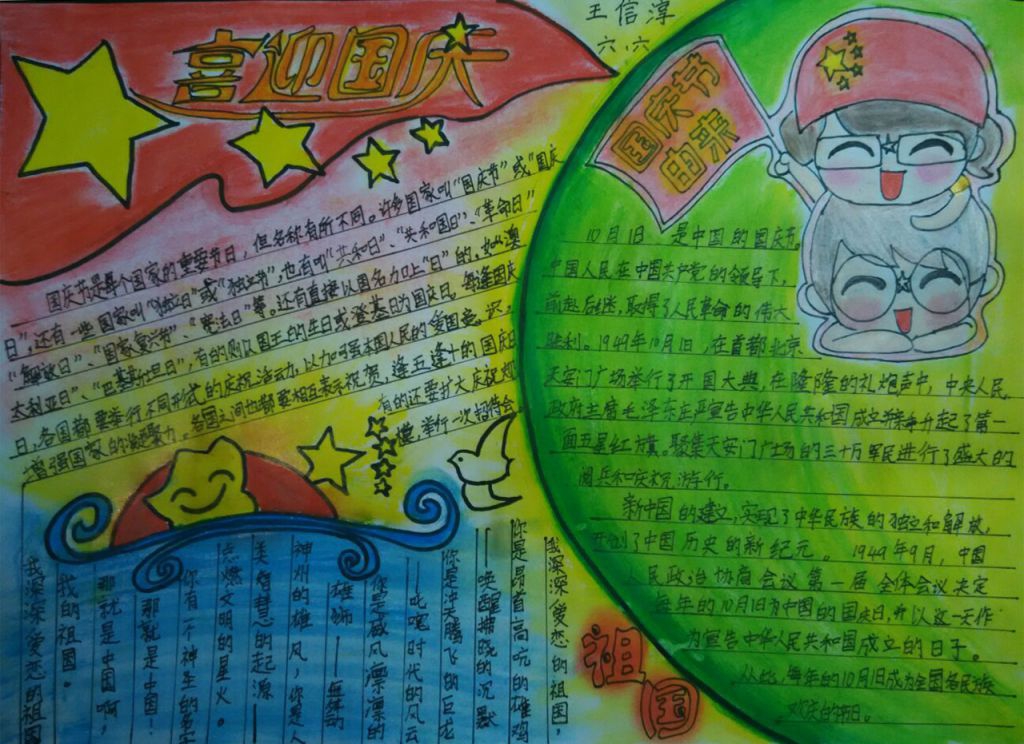 喜迎国庆
王信淳
六.六
国庆节
由来
国庆节是每个国家的重要节日，但名称有所不同。许多国家叫“国庆节”或“国庆
日”，还有一些国家叫“独立日”或“独立节”，也有叫“共和日”、“共和国日”、“革命日”
“解放日”、“国家复兴节”、“宪法日”等。还有直接以国名加上“日”的，如“澳
大利亚日”、“巴基斯坦日”，有的则以国王的生日或登基的为国庆日。每逢国庆
日，各国都要举行不同形式的庆祝活动，以加强本国人民的爱国意识
增强国家的凝聚力。各国之间也都要相互表示祝贺，逢五逢十的国庆日
有的还要扩大庆祝规
模，举行一次招待会。
10月1日，是中国的国庆节。
中国人民在中国共产党的领导下，
前赴后继，取得了人民革命的伟大
胜利。1949年10月1日，在首都北京
天安门广场举行了开国大典，在隆隆的礼炮声中，中央人民
政府主席毛泽东庄严宣告中华人民共和国成立并升起了第一
面五星红旗。聚集天安门广场的三十万军民进行了盛大的
阅兵和庆祝游行。
新中国的建立，实现了中华民族的独立和解放，
开创了中国历史的新纪元。1949年9月，中国
人民政治协商会议第一届全体会议决定
每年的10月1日为中国的国庆日，并以这一天作
为宣告中华人民共和国成立的日子。
从此，每年的10月1日成为全国各民族
欢庆的节日。
祖国
我深深爱恋的祖国，
你是昂首高吭的雄鸡
——唤醒拂晓的沉默
你是冲天腾飞的巨龙
——叱咤时代的风云
你是威风凛凛的
雄狮——
神州的雄风，你是人
类智慧的起源——
点燃文明的星火。
你有一个神圣的名字
那就是中国！
那就是中国啊，
我的祖国。
我深深爱恋的祖国